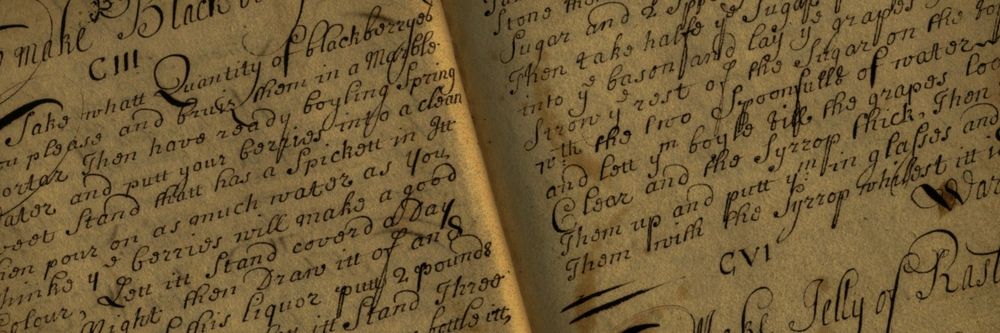 make Black
CIII
Take whatt Quantity of blackberryes
you please and bruis them in a Marble
Mortar Then have ready boyling Spring
water and putt your berries into a clean
Sweet Stand thatt has a Spickett in Itt
then pour on as much water as You
thinke ye berries will make a good
Colour, Lett itt Stand coverd a Day
Night then Draw itt of and
this liquor putt 2 pounds
itt Stand Three
bottle itt,
Stone them
Sugar and 2 Spo
Then take halfe ye Sugar
into ye bason and lay ye grapes
Strow ye rest of the Sugar on the top
with the two Spoonfulls of water
and lett ym boyle till the grapes loo
Clear and the Syrrop thick, Then
Them up and putt ym in glasses and
Them with the Syrrop whilest itt is
War
CVI
Make Jelly of Rasb